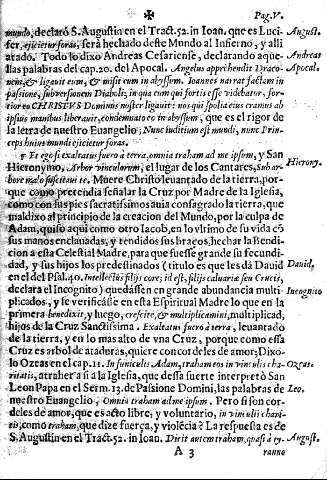 ✠ Pag. V.
mundo, declarò S. Augustin en el Tract. 52. in Ioan. que es Luci- August.
fer, ejicietur foras, serà hechado deste Mundo al Infierno, y alli
atado. Todo lo dixo Andreas Cesariense, declarando aque- Andreas
llas palabras del cap. 20. del Apocal. Angelus apprehendit Draco-
nem, & ligavit eum, & misit eum in abyssum. Ioannes narrat factam in
passione, subversionem Diaboli, in qua eum qui fortis esse videbatur, for-
tior eo CHRISTVS Dominus noster ligavit: nos qui spolia eius eramus ab
ipsius manibus liberavit, condemnato eo in abyssum, que es el rigor de
la letra de nuestro Euangelio, Nunc iuditium est mundi, nunc Prin-
ceps huius mundi ejicietur foras.
Et ego si exaltatus fuero à terra, omnia traham ad me ipsum, y San
Hieronymo, Arbor vinculorum, el lugar de los Cantares, Sub ar- Hierony.
bore malo suscitavi te. Muere Christo leuantado de la tierra, por-
que como pretendia señalar la Cruz por Madre de la Iglesia,
como con sus pies sacratissimos auia consagrado la tierra, que
maldixo al principio de la creacion del Mundo, por la culpa de
Adam, quiso aqui como otro Iacob, en lo vltimo de su vida cõ
sus manos enclauadas, y tendidos sus braços, hechar la Bendi-
cion a esta Celestial Madre, para que fuesse grande su fecundi-
dad, y sus hijos los predestinados (titulo es que les dà Dauid David,
en el Psal. 40. Intellectus filijs core; id est, filijs caluariæ seu Crucis,
declara el Incognito) quedàssen en grande abundancia multi- Incognito
plicados, y se verificàsse en esta Espiritual Madre lo que en la
primera benedixit, y luego, crescite, & multiplicamini, multiplicad,
hijos de la Cruz Sanctissima. Exaltatus fuero à terra, leuantado
de la tierra, y en lo mas alto de vna Cruz, porque como essa
Cruz es arbol de ataduras, quiere con cordeles de amor, Dixo-
lo Ozeas en el cap. 11. In funiculis Adam, traham eos in vinculis cha- Ozeas.
ritatis, atraher a sì a la Iglesia, que desta suerte interpretò San
Leon Papa en el Serm. 13. de Passione Domini, las palabras de Leo.
nuestro Euangelio, Omnia traham ad me ipsum. Pero si son cor-
deles de amor, que es acto libre, y voluntario, in vinculis chari-
tatis, como traham, que dize fuerça, y violécia? La respuesta es de
S. Augustin en el Tract. 52. in Ioan. Dicit autem traham, quasi à ty- August.
A 3 ranno